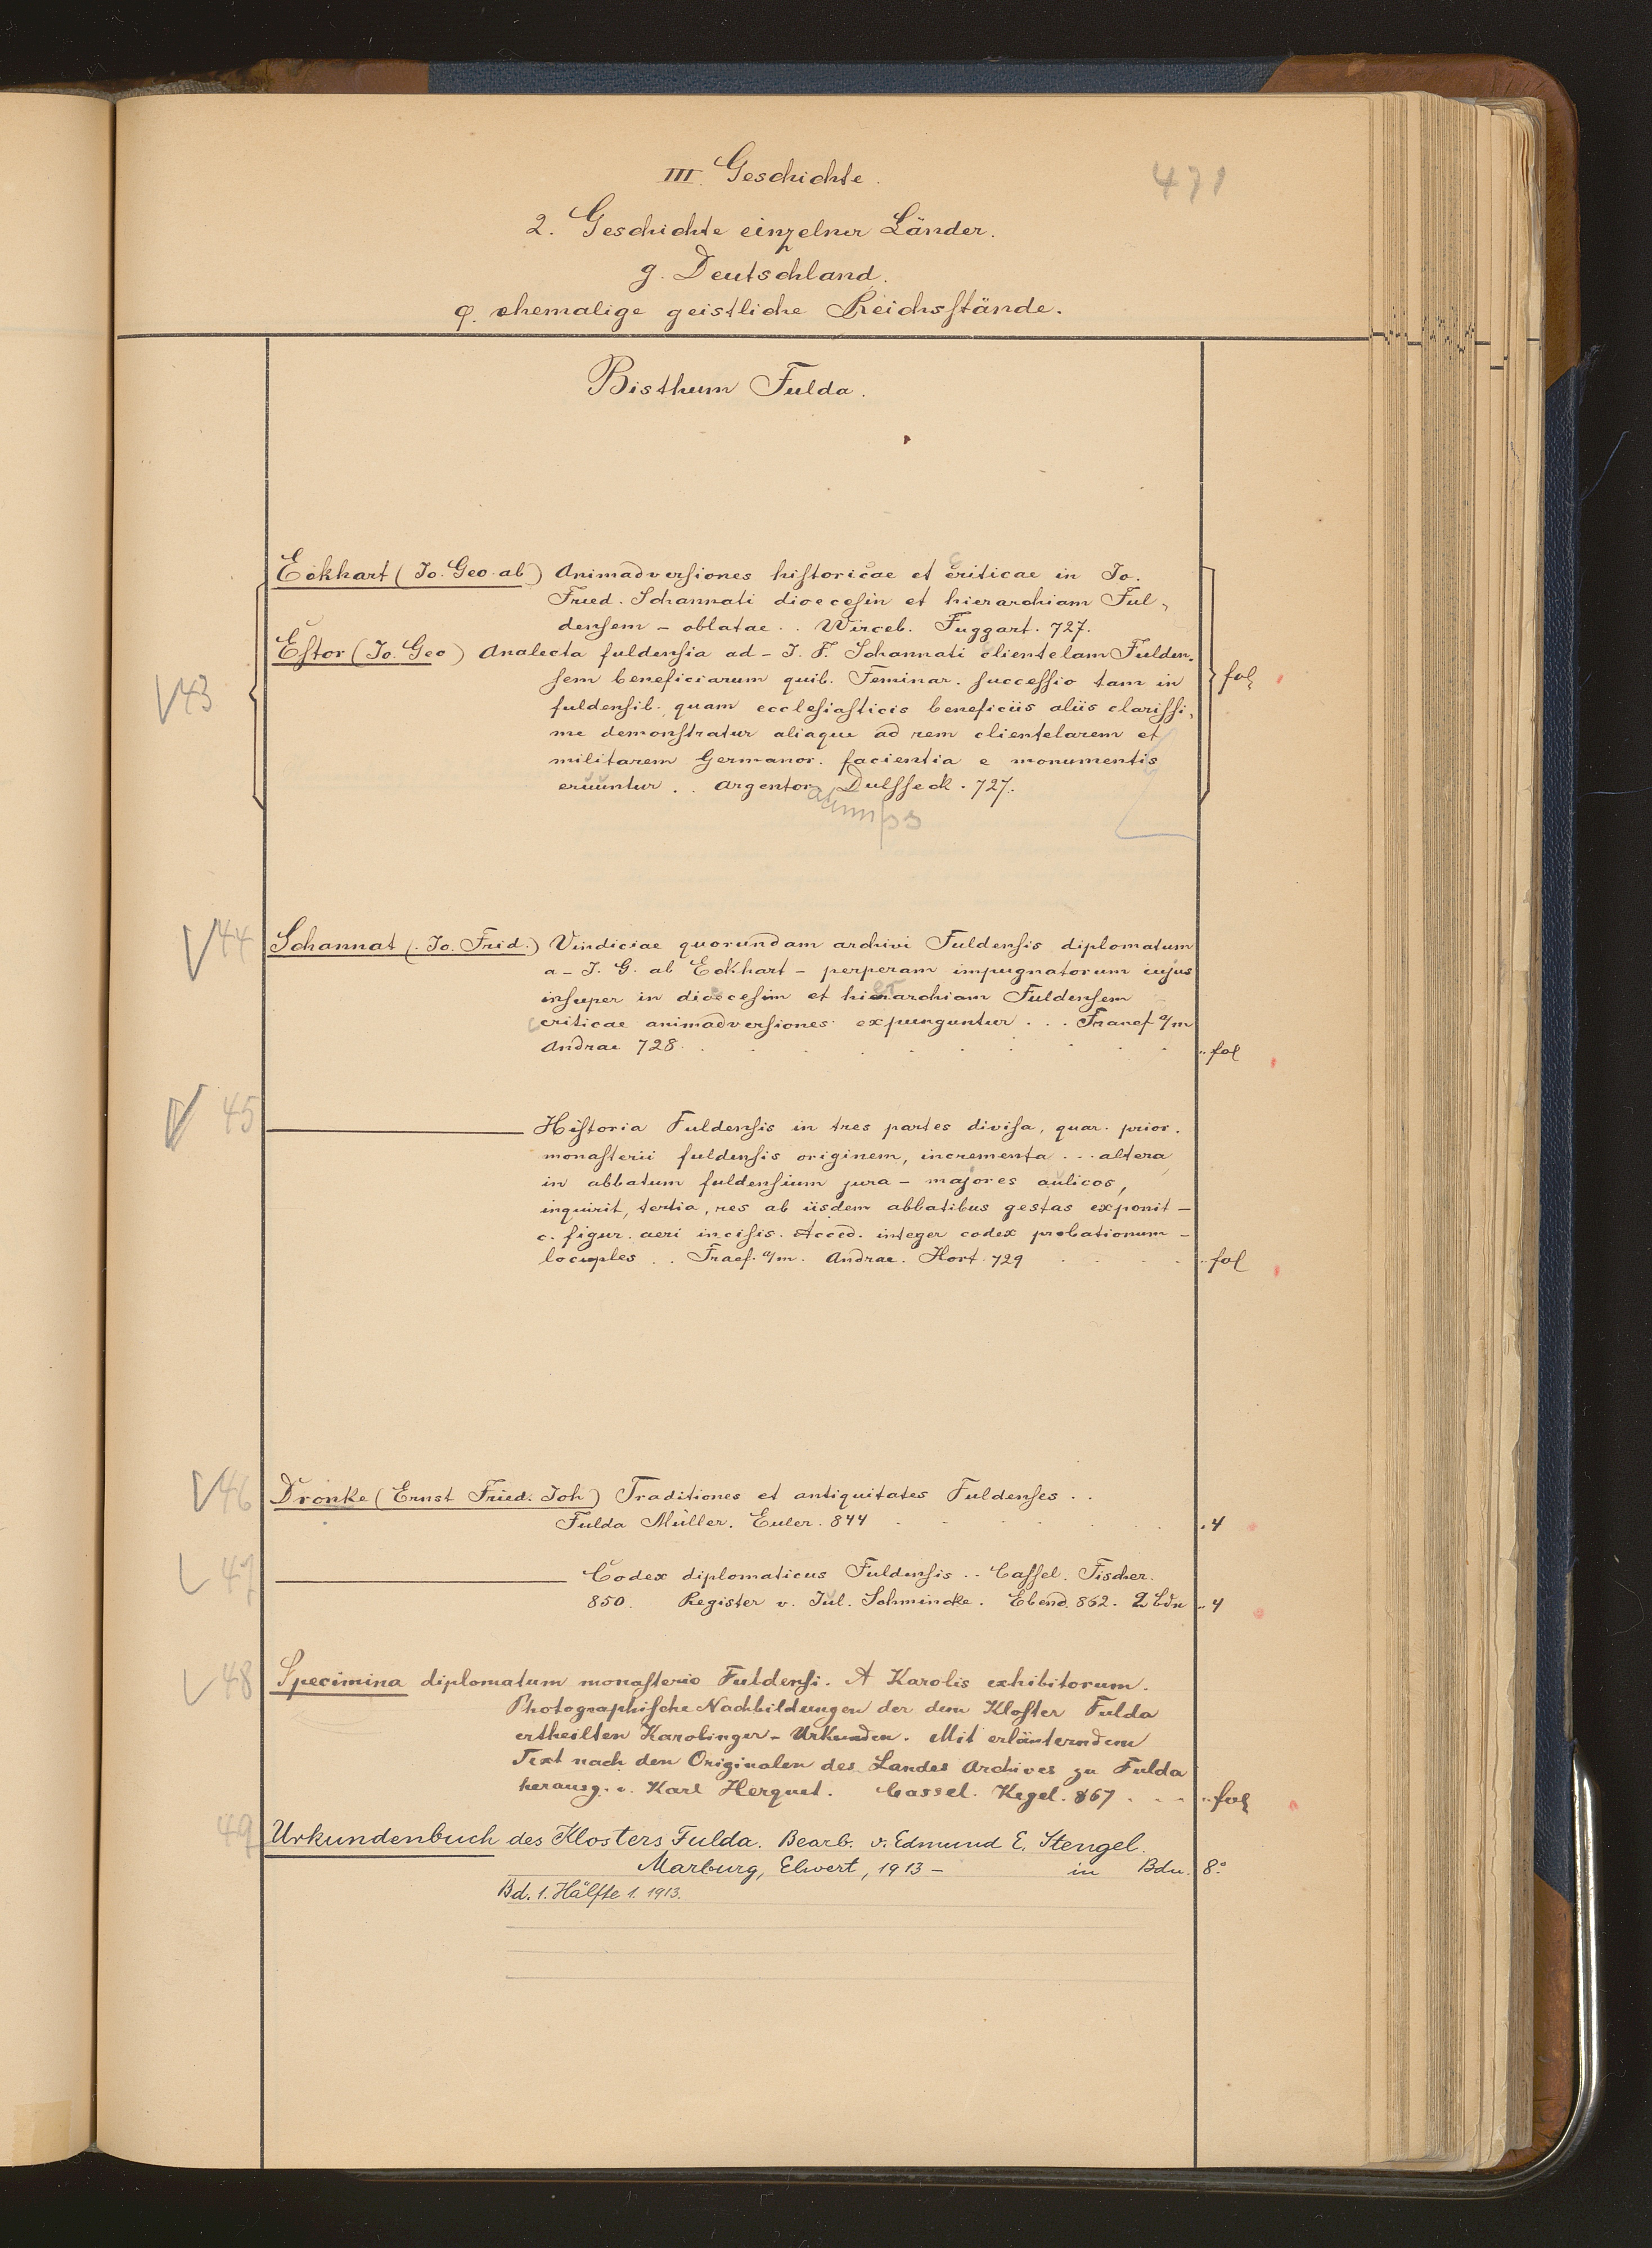 III. Geschichte.
471
2. Geschichte einzelner Länder.
g. Deutschland.
φ. ehemalige geistliche Reichsstände.
Bisthum Fulda.
Eckhart (Jo. Geo. ab) Animadversiones historicae et criticae in Jo.
Fried. Schannati dioecesin et hierarchiam Ful-
densem – oblatae . . Wirceb. Fuggart. 727.
Estor (Jo. Geo) Analecta fuldensia ad – J. F. Schannati clientelam Fulden-
sem beneficiarum quib. Feminar. successio tam in
V43
fol
fuldensib. quam ecclesiasticis beneficiis aliis clarissi-
me demonstratur aliaque ad rem clientelarem et
militarem Germanor. facientia e monumentis
eruuntur . . Argentor. Dulsseck. 727.
V44 Schannat (Jo. Frid.) Vindiciae quorundam archivi Fuldensis diplomatum
a – J. G. ab Eckhart – perperam impugnatorum cujus
insuper in dioecesim et hierarchiam Fuldensem
criticae animadversiones expunguntur . . . Francf a/m
Andrae 728 . . . fol
V 45 Historia Fuldensis in tres partes divisa, quar. prior.
monasterii fuldensis originem, incrementa . . . altera
in abbatum fuldensium jura – majores aulicos,
inquirit, tertia, res ab iisdem abbatibus gestas exponit –
c. figur. aeri incisis. Acced. integer codex probationum –
locuples . . Fracf. a/m. Andrae. Hort. 729 . . . fol
V46 Dronke (Ernst Fried. Joh) Traditiones et antiquitates Fuldenses . .
Fulda Müller. Euler. 844 . . . 4
V 47 Codex diplomaticus Fuldensis . . Cassel. Fischer.
850. Register v. Jul. Schmincke. Ebend. 862. 2 Bdn . . 4
V 48 Specimina diplomatum monasterio Fuldensi. A Karolis exhibitorum.
Photographische Nachbildungen der dem Kloster Fulda
ertheilten Karolinger-Urkunden. Mit erläuterndem
Text nach den Originalen des Landes Archives zu Fulda
herausg. v. Karl Herquet. Cassel. Kegel. 867 . . . fol
49 Urkundenbuch des Klosters Fulda. Bearb. v. Edmund E. Stengel.
Marburg, Elwert, 1913 – in Bdn. 8°
Bd. 1. Hälfte 1. 1913.